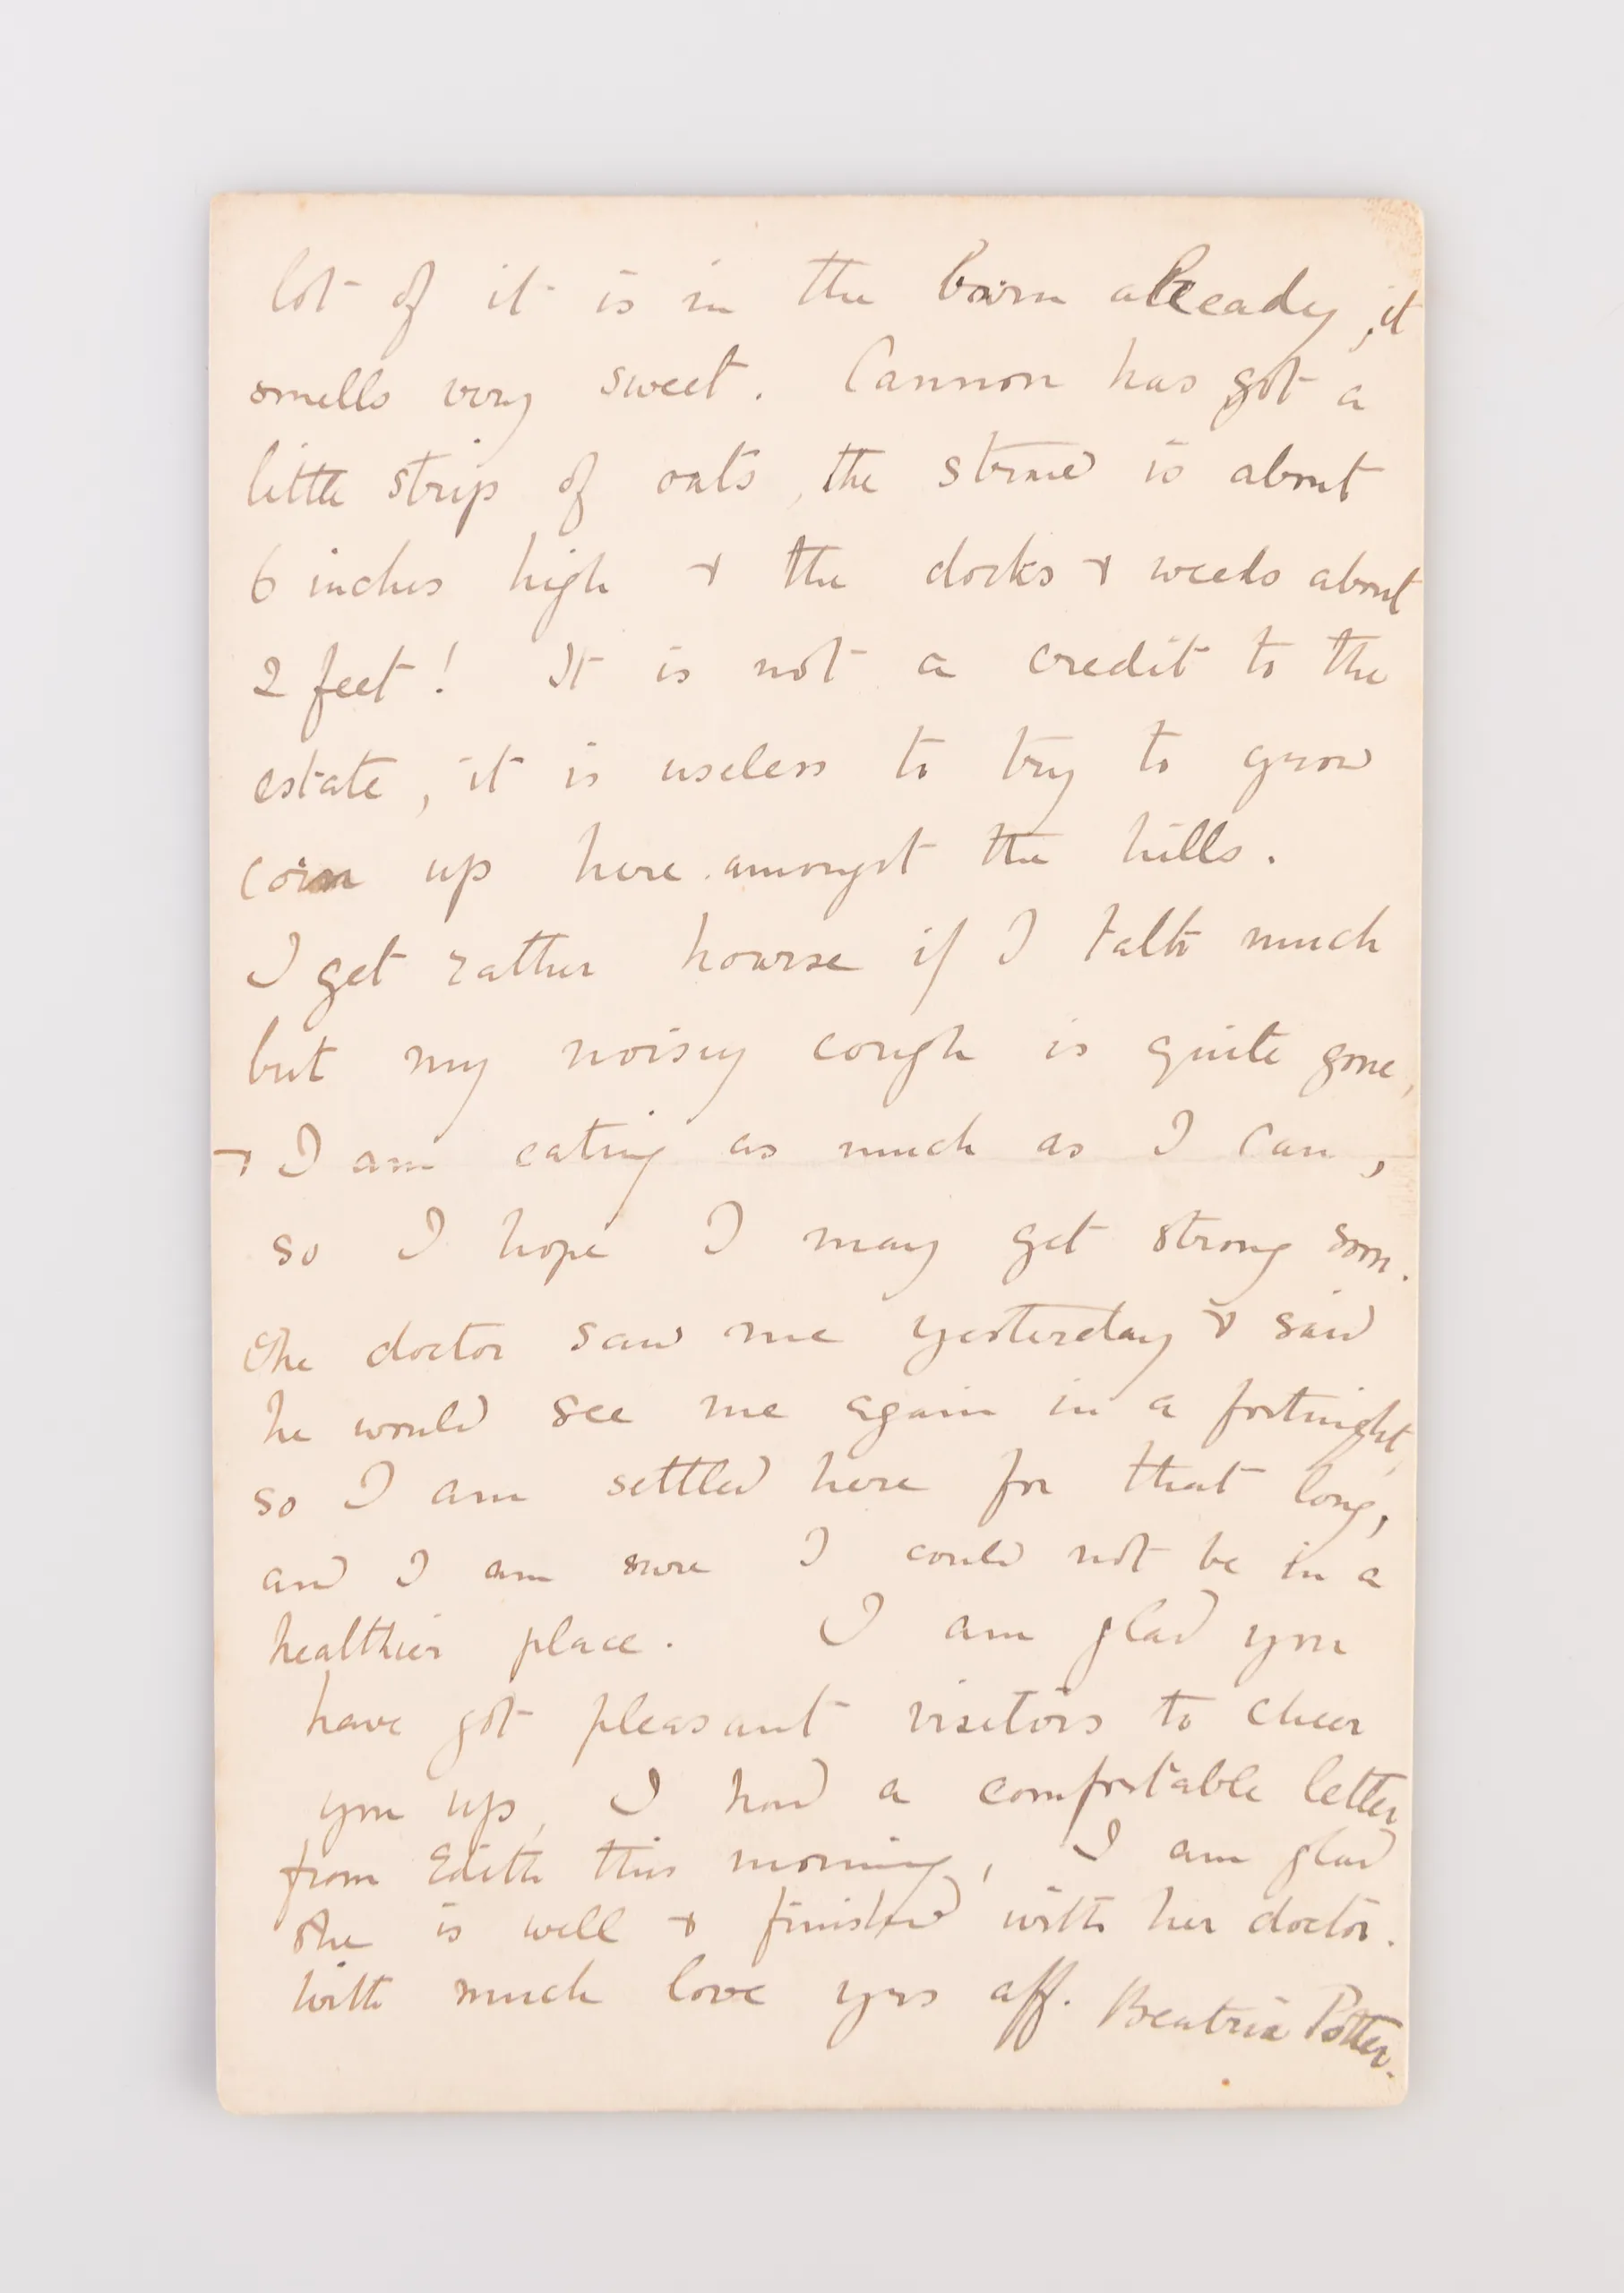 lot of it is in the barn already, it
smells very sweet. Cannon has got a
little strip of oats, the straw is about
6 inches high & the docks & weeds about
2 feet! It is not a credit to the
estate, it is useless to try to grow
corn up here amongst the hills.
I get rather hoarse if I talk much
but my noisy cough is quite gone,
& I am eating as much as I can,
so I hope I may get strong soon.
The doctor saw me yesterday & said
he would see me again in a fortnight,
so I am settled here for that long,
and I am sure I could not be in a
healthier place. I am glad you
have got pleasant visitors to cheer
you up, I had a comfortable letter
from Edith this morning, I am glad
she is well & finished with her doctor.
With much love yrs aff. Beatrix Potter.